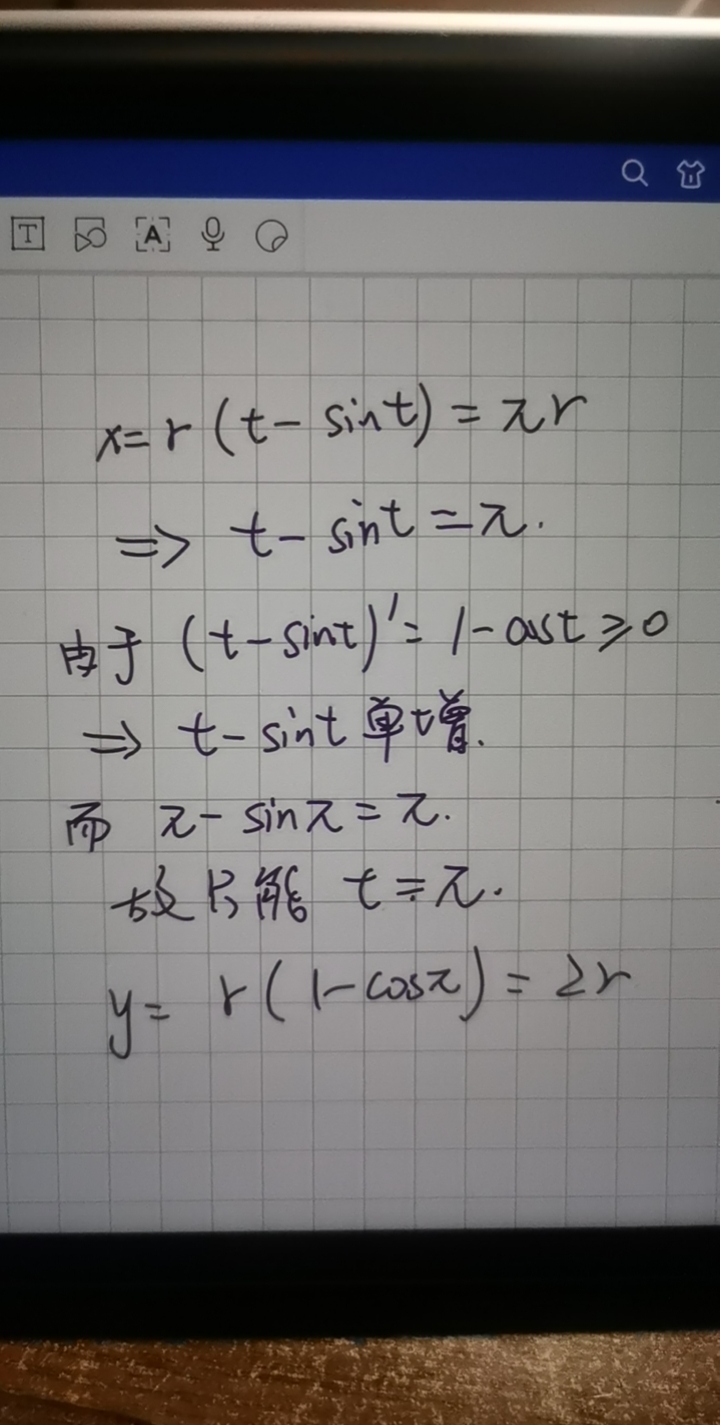 T
A
x=r(t-sint)=πr
=> t-sint=π.
由于 (t-sint)'=1-cost≥0
=> t-sint单增.
而 π-sinπ=π.
故只能 t=π.
y= r(1-cosπ)=2r